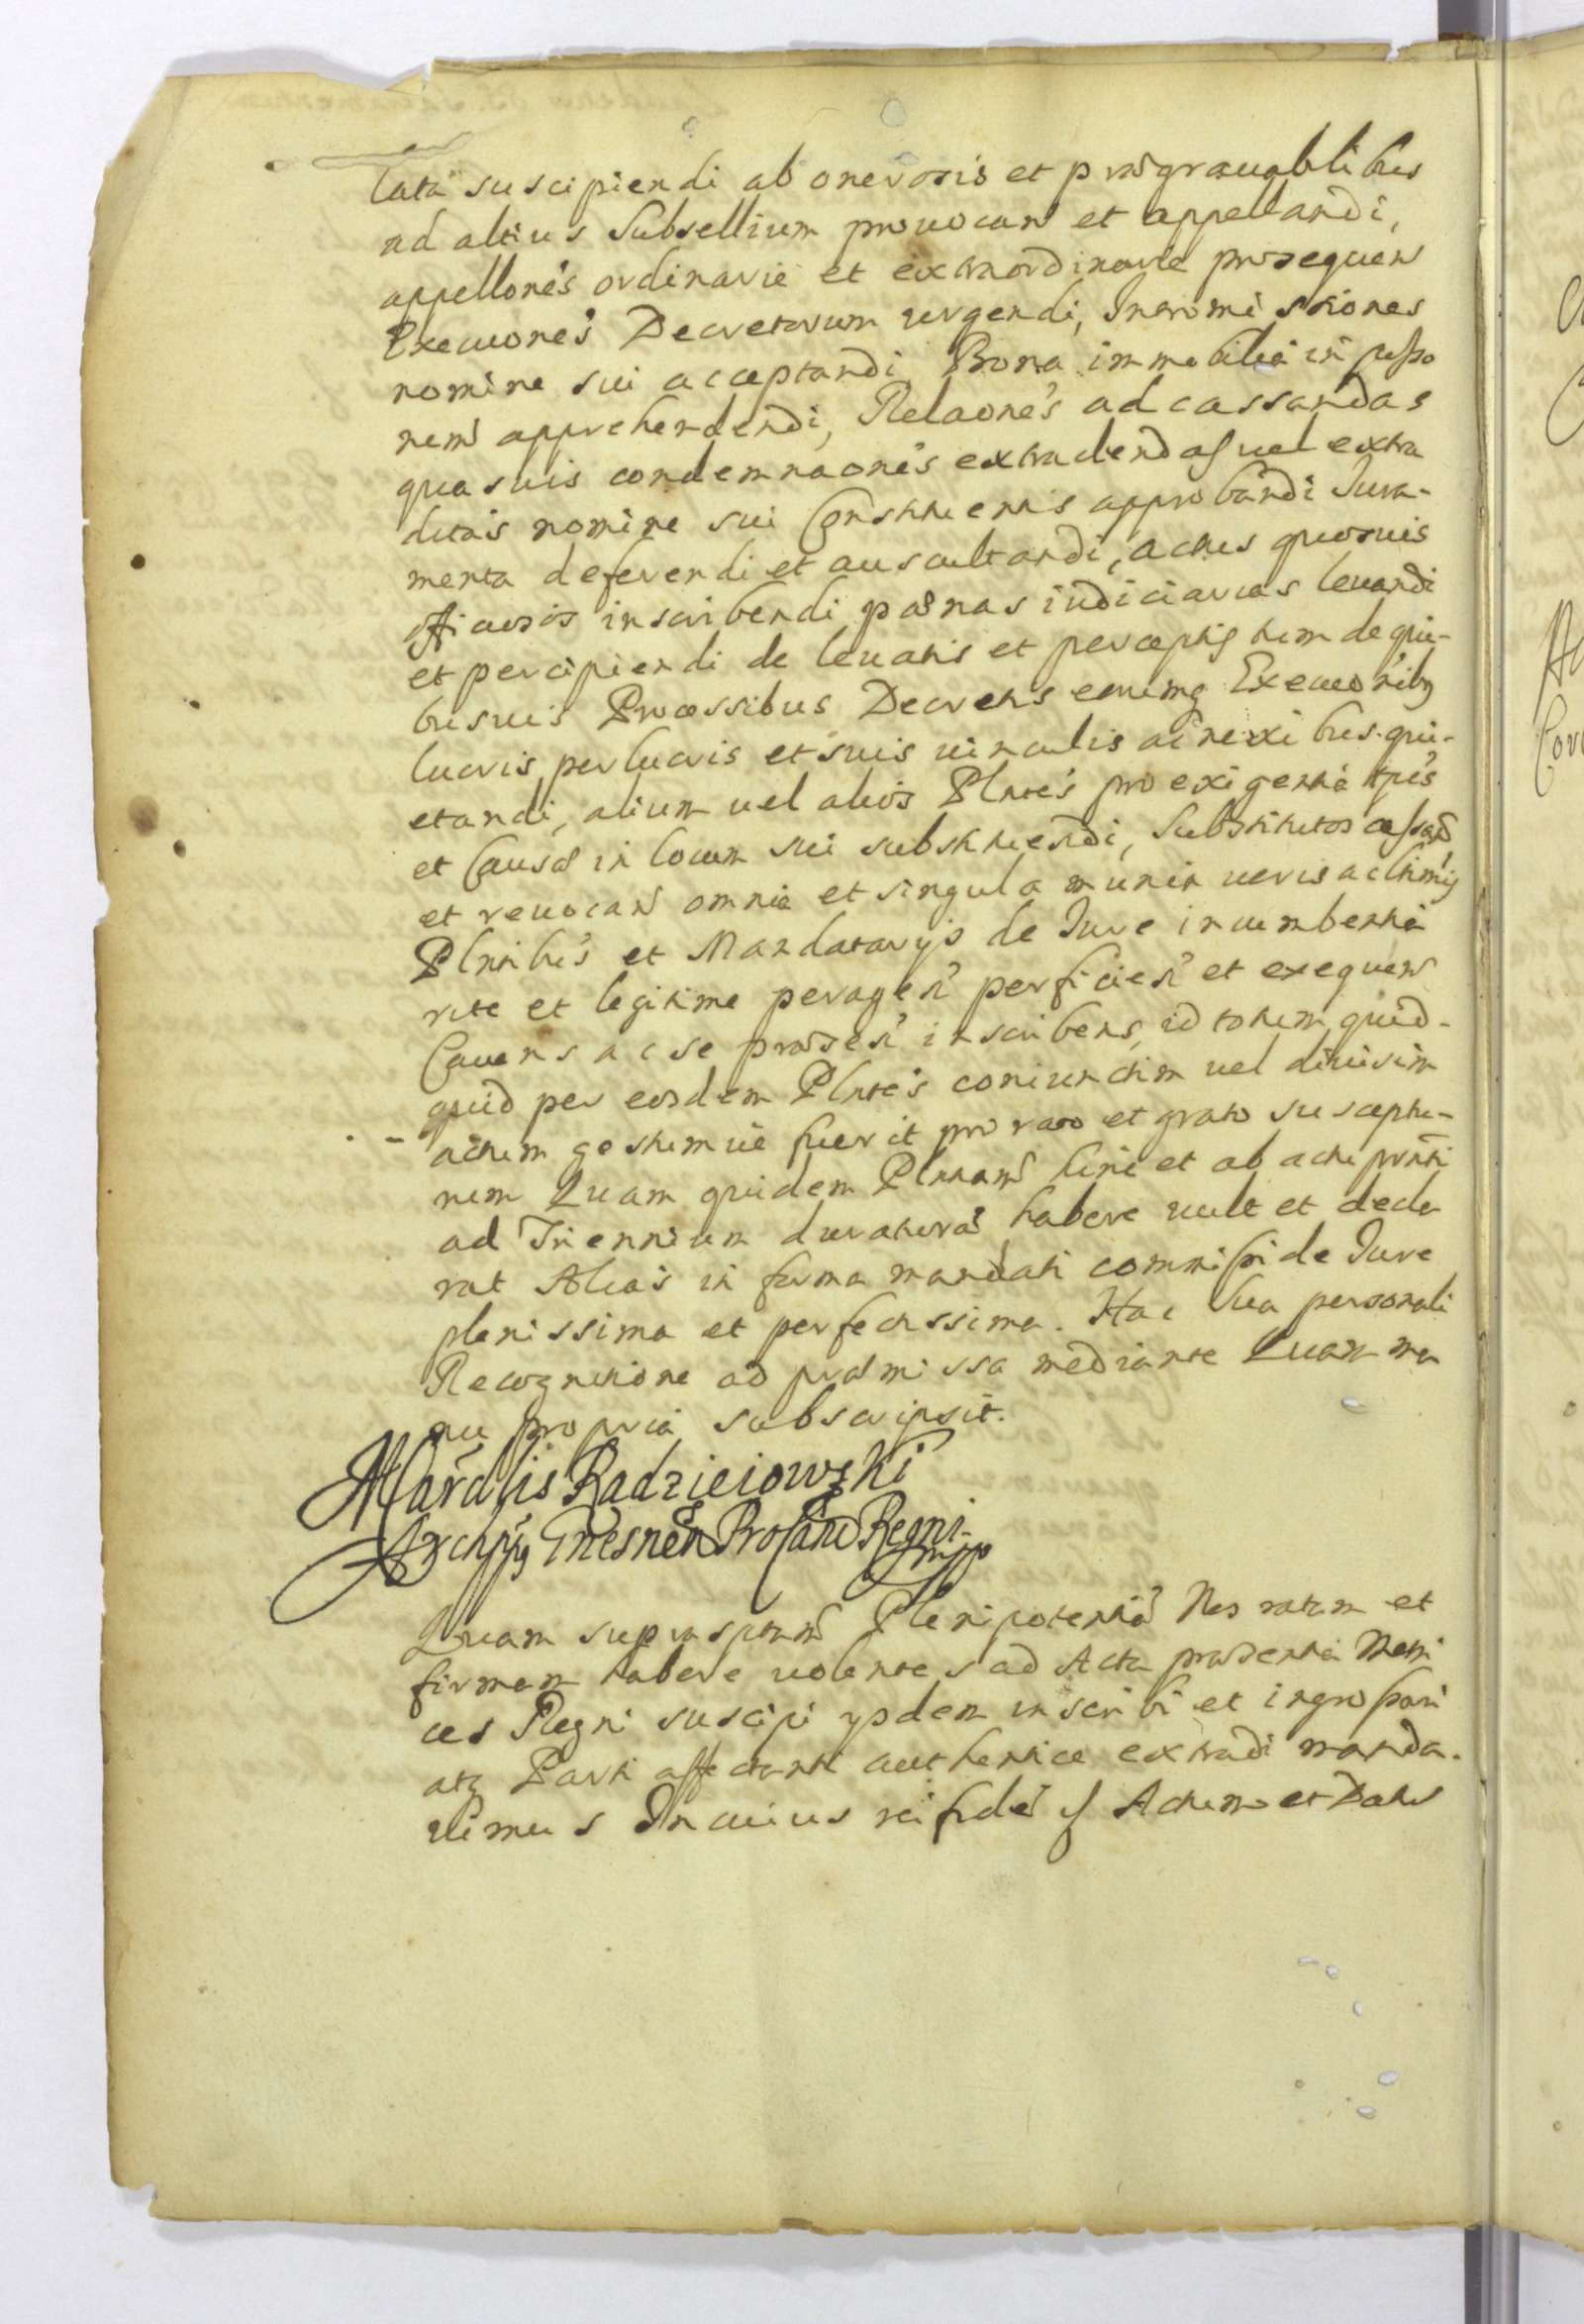 lata suscipiendi ab onerosis et prægrauablibus
ad altius Subsellium prouocan̄ et appellandi,
appellonēs ordinarie et extraordinarie prosequen̄
Execuonēs Decretorum urgendi, Intromissiones
nomine sui acceptandi Bona immobilia in possio
nem̄ apprehendendi, Relaonēs ad cassandas
quasuis condemnaonēs extradendas uel extra
ditas nomine sui Constituentis approbandi Iura-
menta deferendi et auscultandi, actus quosuis
officiosos inscribendi pœnas iudiciarias leuandi
et percipiendi de leuatis et perceptis tum de qui-
busuis Processibus Decretis earumq̨ Execuonibq̨
lucris perlucris et suis uinculis annexibus qui-
etandi, alium uel alios Plntēs pro exigentia tpis
et Causæ in locum sui substituendi, Substitutos cassan̄
et reuocan̄ omnia et singula munia ueris ac ltimis
Plntibus et Mandatarys de Iure incumbentia
rite et legitime peragen̄ perficien̄ et exequen̄
Cauens ac se præsen̄ inscribens, id totum quid-
quid per eosdem Plntēs coniunctim uel diuisim
actum gestumue fuerit pro rato et grato susceptu-
rum Quam quidem Plntiam̄ hinc et ab actu prnti
ad Triennium duraturā habere uult et decla
rat Alias in forma mandati commissi de Iure
plenissima et perfectissima. Hac Sua personali
Recognitione ad præmissa mediante Quam ma
nu propria subscripsit.
M Car̄dlis Radzieiowski
Archpp̄q Gnesnen̄ Proīanc̄ Regni
mpp
Quam suprasptam̄ Plenipotentiā Nos ratam et
firmam habere uolentes ad Acta præsentia Metri
ces Regni suscipi ysdem inscribi et ingrossari
atq̨ Parti affectanti authentice extradi manda-
uimus In cuius rei fidē ʃ Actum et Datu